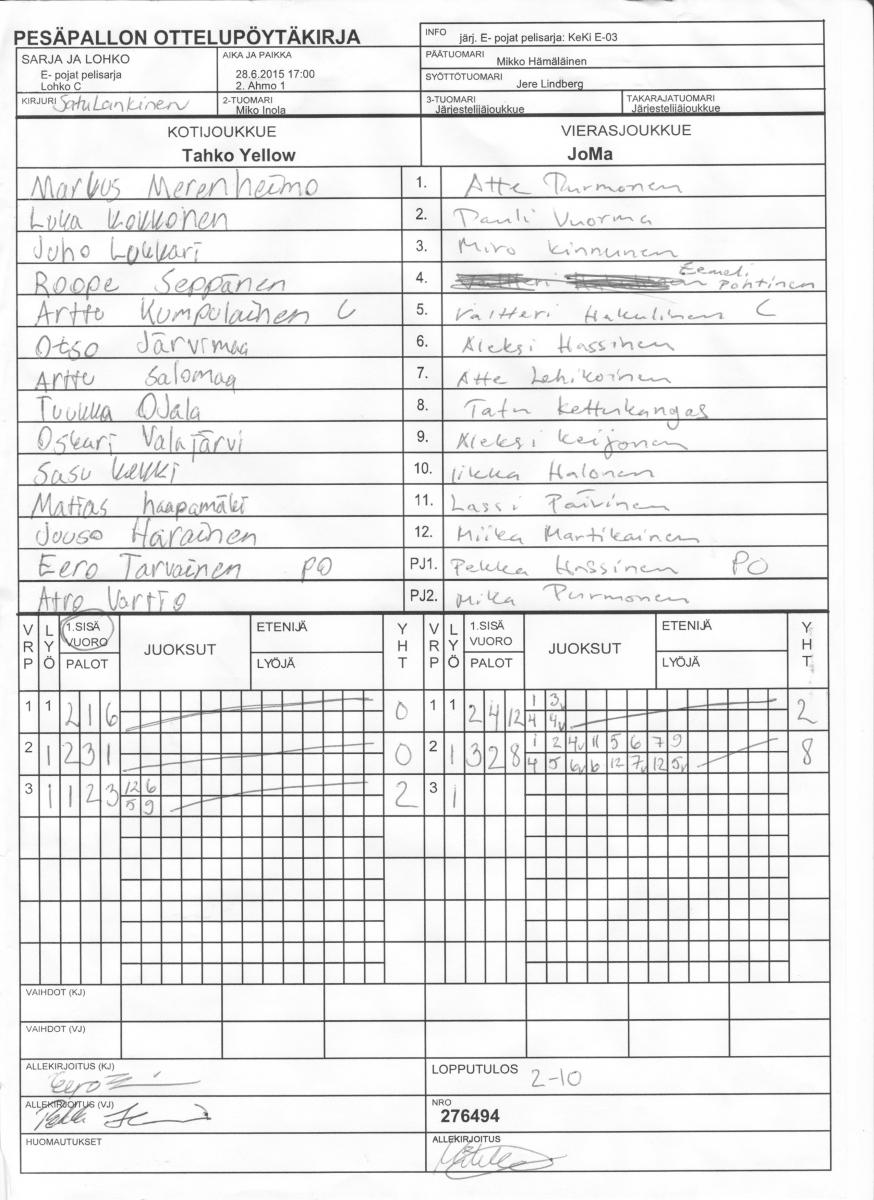 PESÄPALLON OTTELUPÖYTÄKIRJA
INFO järj. E- pojat pelisarja: KeKi E-03
SARJA JA LOHKO
E- pojat pelisarja
Lohko C
AIKA JA PAIKKA
28.6.2015 17:00
2. Ahmo 1
PÄÄTUOMARI
Mikko Hämäläinen
SYÖTTÖTUOMARI
Jere Lindberg
KIRJURI Satu Lankinen
2-TUOMARI
Miko Inola
3-TUOMARI
Järjestelijäjoukkue
TAKARAJATUOMARI
Järjestelijäjoukkue
KOTIJOUKKUE
Tahko Yellow
VIERASJOUKKUE
JoMa
Markus Merenheimo 1. Atte Purmonen
Luka Kokkonen 2. Pauli Vuorma
Juho Lukkari 3. Miro Kinnunen
Roope Seppänen 4. Eemeli Pohtinen
Arttu Kumpulainen C 5. Valtteri Hakulinen C
Otso Järvimaa 6. Aleksi Hassinen
Arttu Salomaa 7. Atte Lehikoinen
Tuukka Ojala 8. Tatu Kettukangas
Oskari Valajärvi 9. Aleksi Keijonen
Sasu Kekki 10. Iikka Halonen
Matias haapamäki 11. Lassi Päivinen
Jouso Harainen 12. Miika Martikainen
Eero Tarvainen PO PJ1. Pekka Hassinen PO
Atro Vartio PJ2. Mika Purmonen
VRP LYÖ 1.SISÄ VUORO PALOT JUOKSUT ETENIJÄ LYÖJÄ YHT VRP LYÖ 1.SISÄ VUORO PALOT JUOKSUT ETENIJÄ LYÖJÄ YHT
1 1 2 1 6 0 1 1 2 4 12 1 3v 2
4 4v
2 1 2 3 1 0 2 1 3 2 8 1 2 4v 11 5 6 7 9 8
4 5 6v 6 12 7v 12 5v
3 1 1 2 3 12 6 2 3 1
5 9
VAIHDOT (KJ)
VAIHDOT (VJ)
ALLEKIRJOITUS (KJ)
LOPPUTULOS
2-10
ALLEKIRJOITUS (VJ)
NRO
276494
HUOMAUTUKSET
ALLEKIRJOITUS